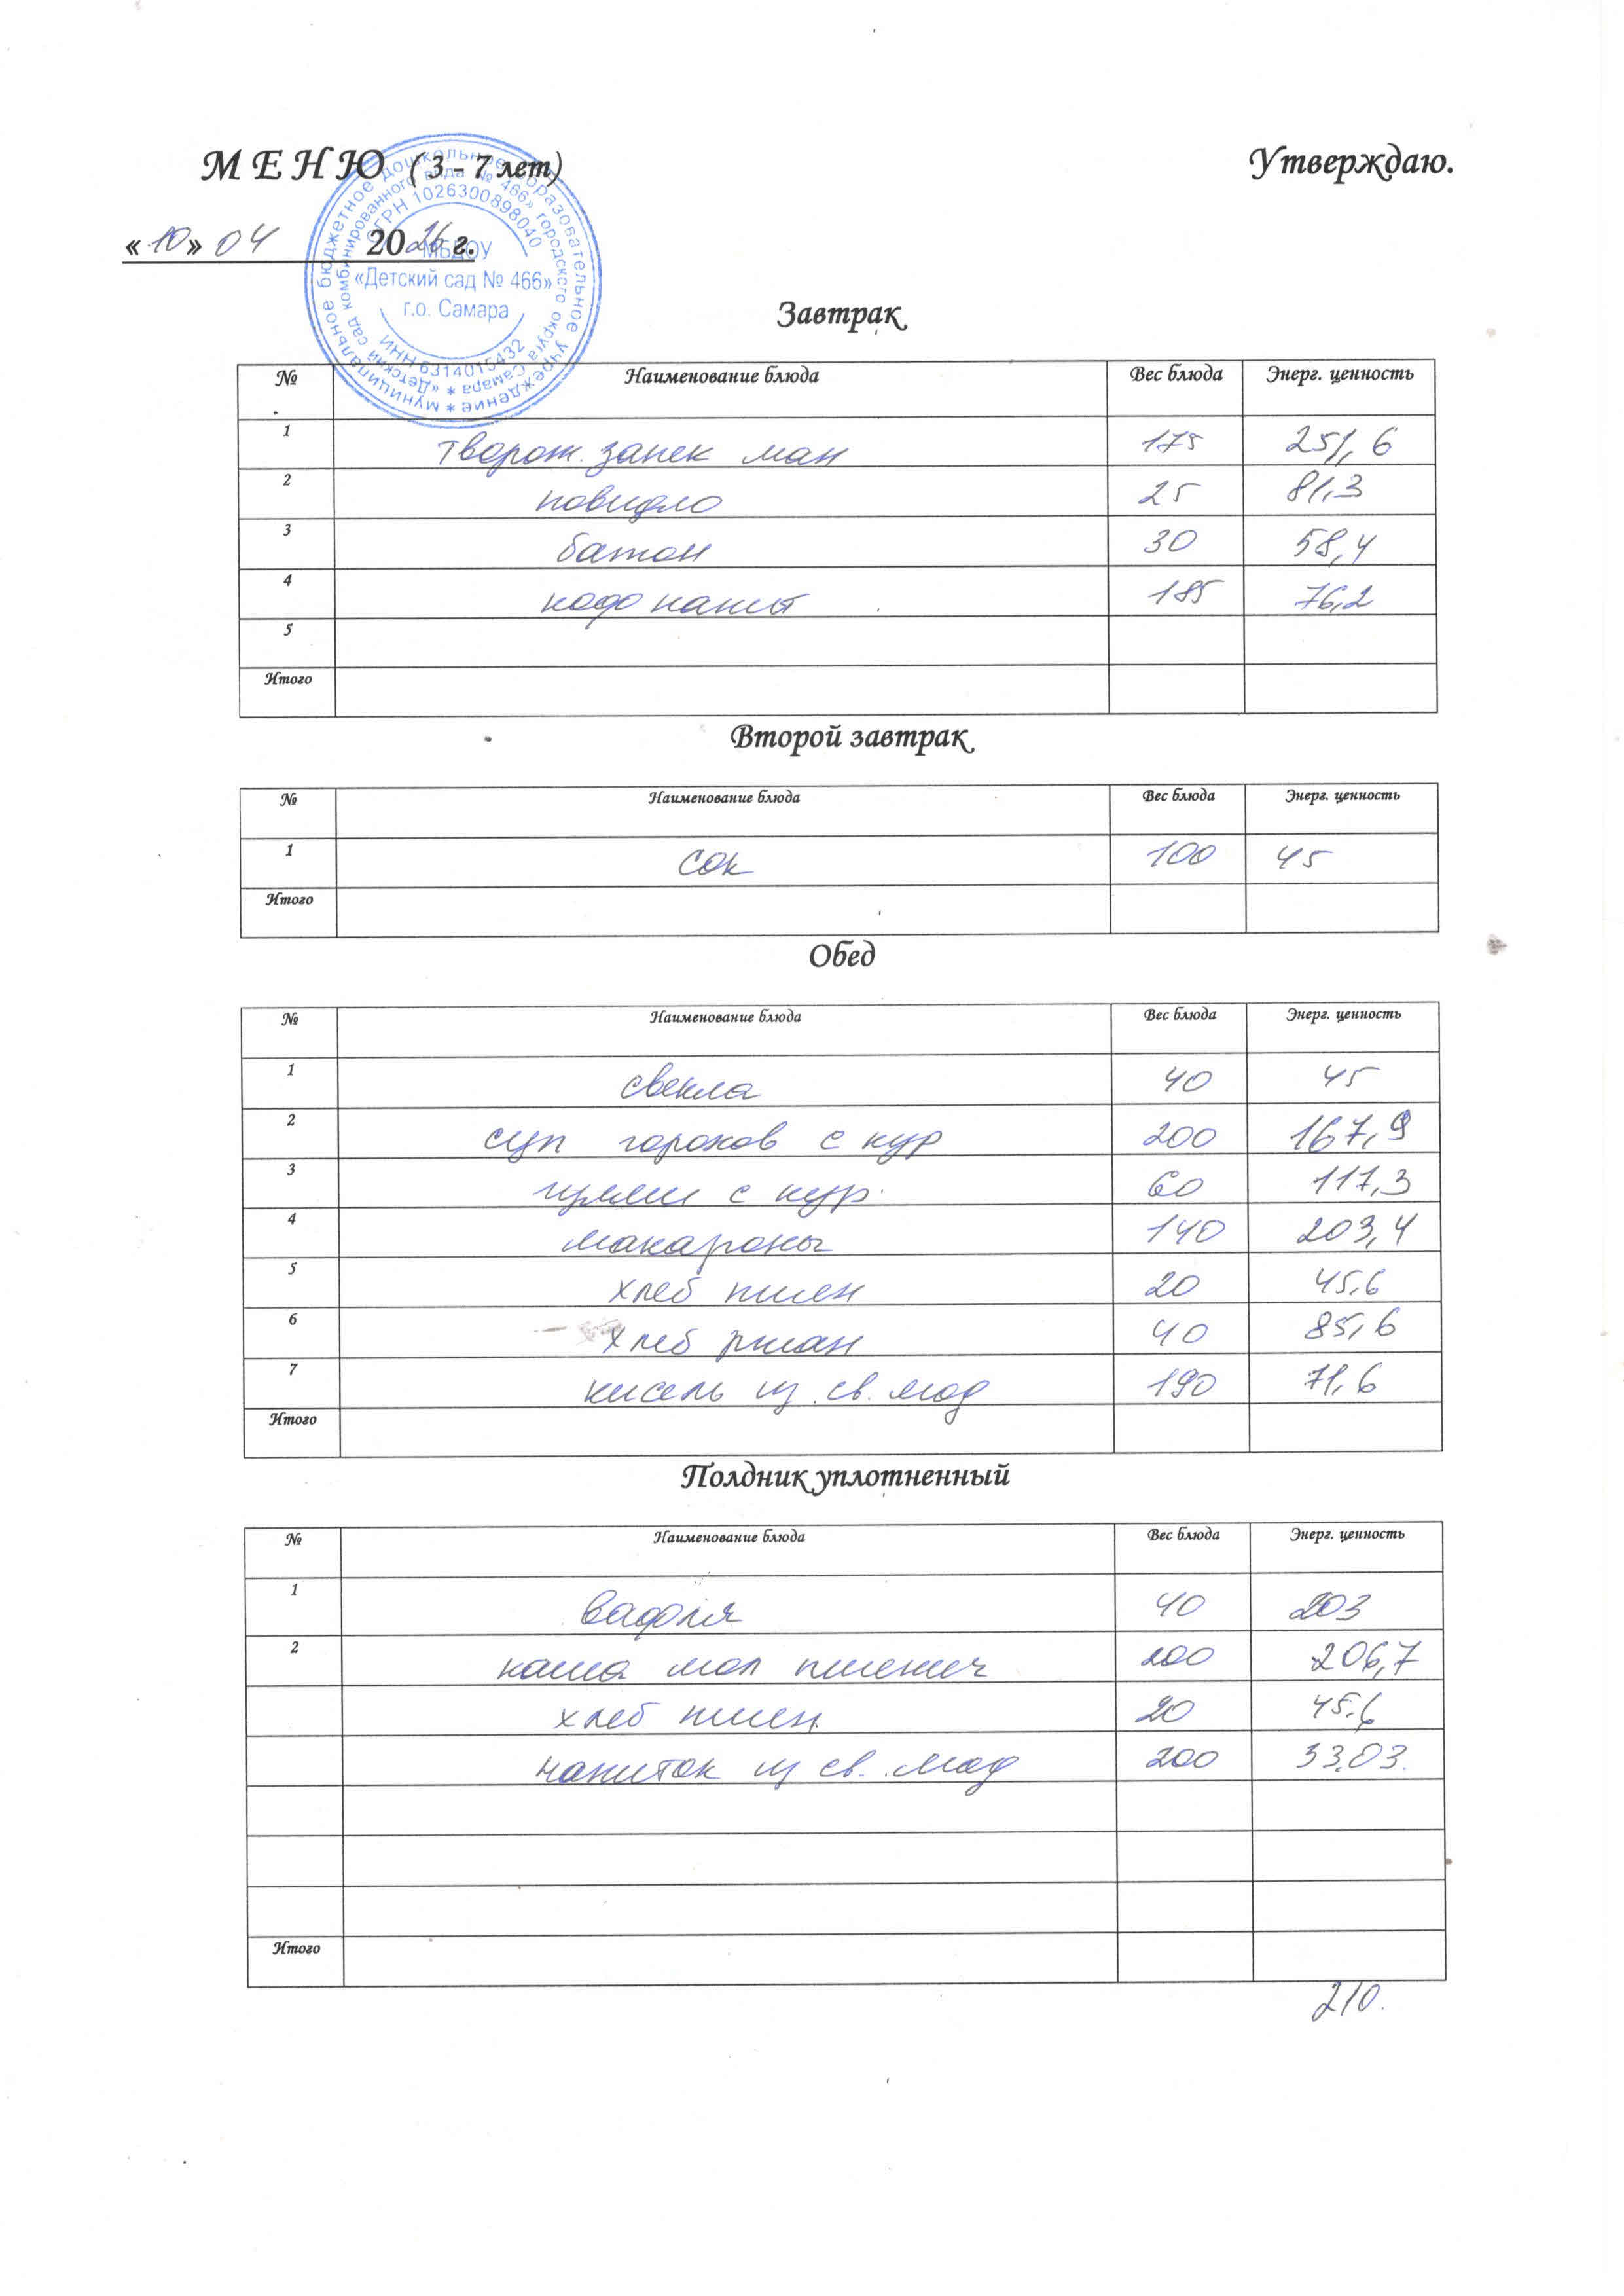 М Е Н Ю ( 3 - 7 лет) Утверждаю.
« 10 » 04 2026 г.
муниципальное бюджетное дошкольное образовательное учреждение *
«Детский сад комбинированного вида № 466» городского округа Самара *
ОГРН 1026300898040
МБДОУ
«Детский сад № 466»
г.о. Самара
ИНН 6314015432
Завтрак
№ Наименование блюда Вес блюда Энерг. ценность
1 творож. запек ман 175 251,6
2 повидло 25 81,3
3 батон 30 58,4
4 кофе напит 185 76,2
5
Итого
Второй завтрак
№ Наименование блюда Вес блюда Энерг. ценность
1 сок 100 45
Итого
Обед
№ Наименование блюда Вес блюда Энерг. ценность
1 свекла 40 45
2 суп горохов с кур 200 167,9
3 гуляш с кур. 60 117,3
4 макароны 140 203,4
5 хлеб пшен 20 45,6
6 хлеб ржан 40 85,6
7 кисель из св. яод 190 71,6
Итого
Полдник уплотненный
№ Наименование блюда Вес блюда Энерг. ценность
1 вафля 40 203
2 каша мол пшенич 200 206,7
хлеб пшен. 20 45,6
напиток из св. яод 200 53.03.
Итого
210.